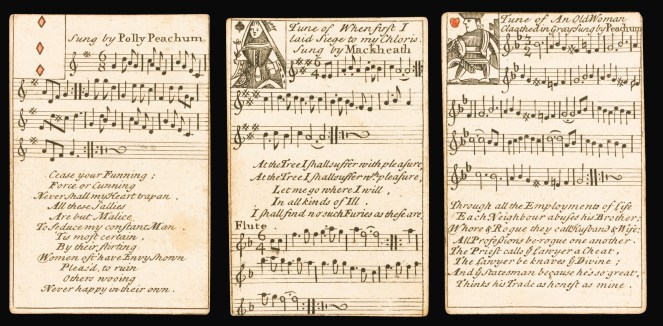 Sung by Polly Peachum
Cease your Funning;
Force or Cunning
Never shall my Heart trapan.
All these Sallies
Are but Malice
To seduce my constant Man
Tis most certain,
By their flirting
Women oft have Envy shown
Pleas'd, to ruin
Others wooing
Never happy in their own.
Tune of When first I
laid Siege to my Chloris.
Sung by Mackheath
At the Tree I shall suffer with pleasure,
At the Tree I shall suffer wth. pleasure,
Let me go where I will,
In all kinds of Ill.
I shall find no such Furies as these are.
Flute.
Tune of An Old Woman
Cloathed in Gray Sung by Peachum
Through all the Employments of Life
Each Neighbour abuses his Brother;
Whore & Rogue they call Husband & Wife:
All Professions be-rogue one another.
The Priest calls ye Lawyer a Cheat,
The Lawyer be knaves ye Divine;
And ye Statesman because he's so great,
Thinks his Trade as honest as mine.